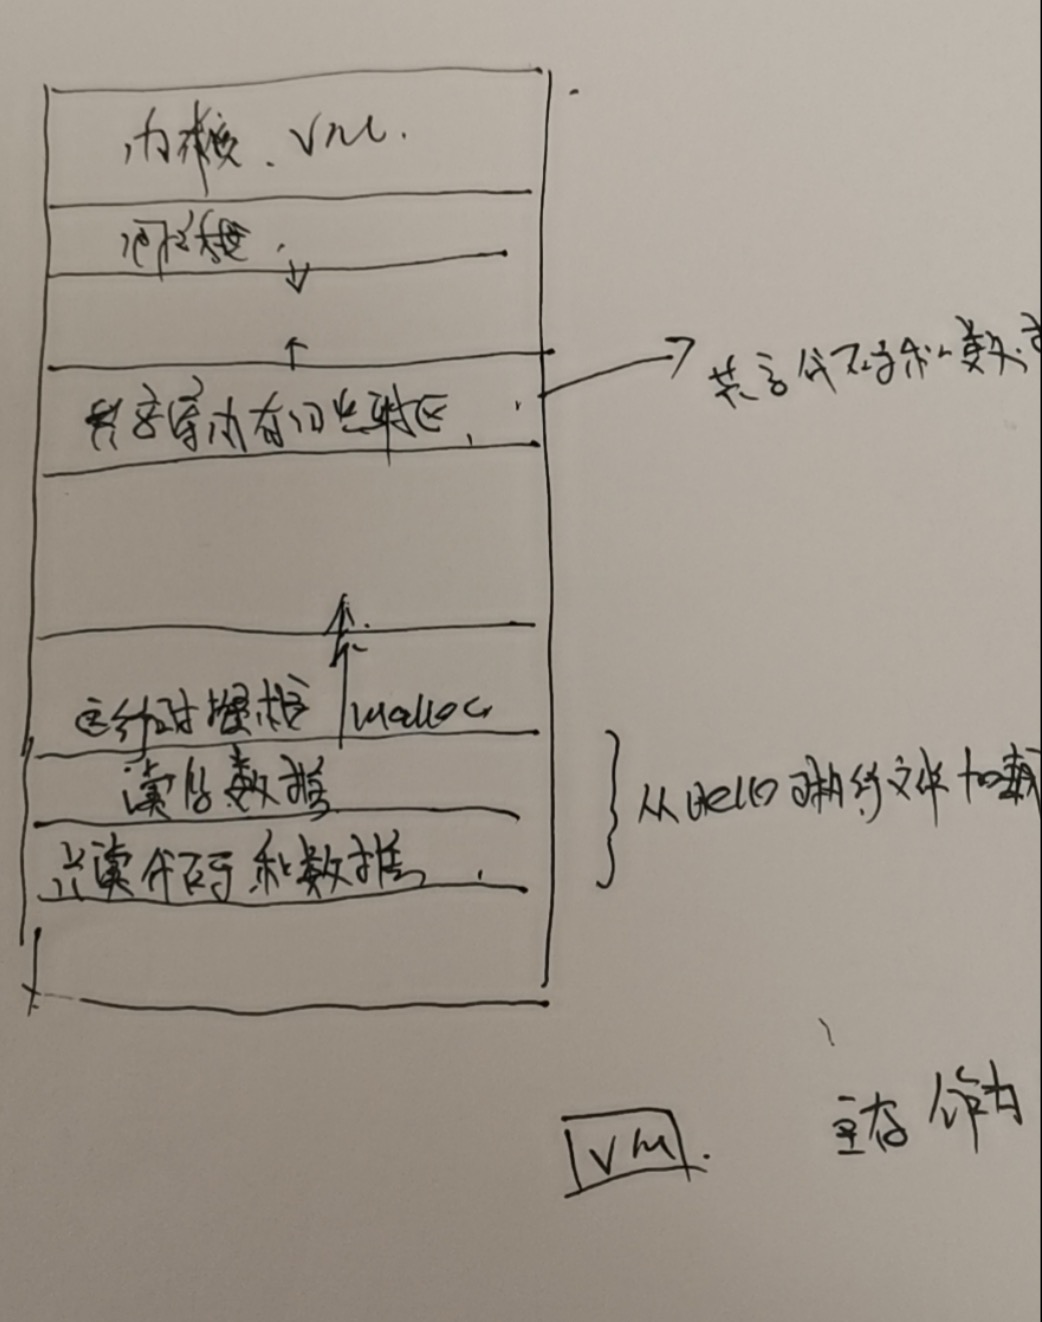 内核 VM.
用户栈
共享库内存映射区
共享代码和数
运行时堆 malloc
读写数据
只读代码和数据
从hello可执行文件加载
VM.
主存作为